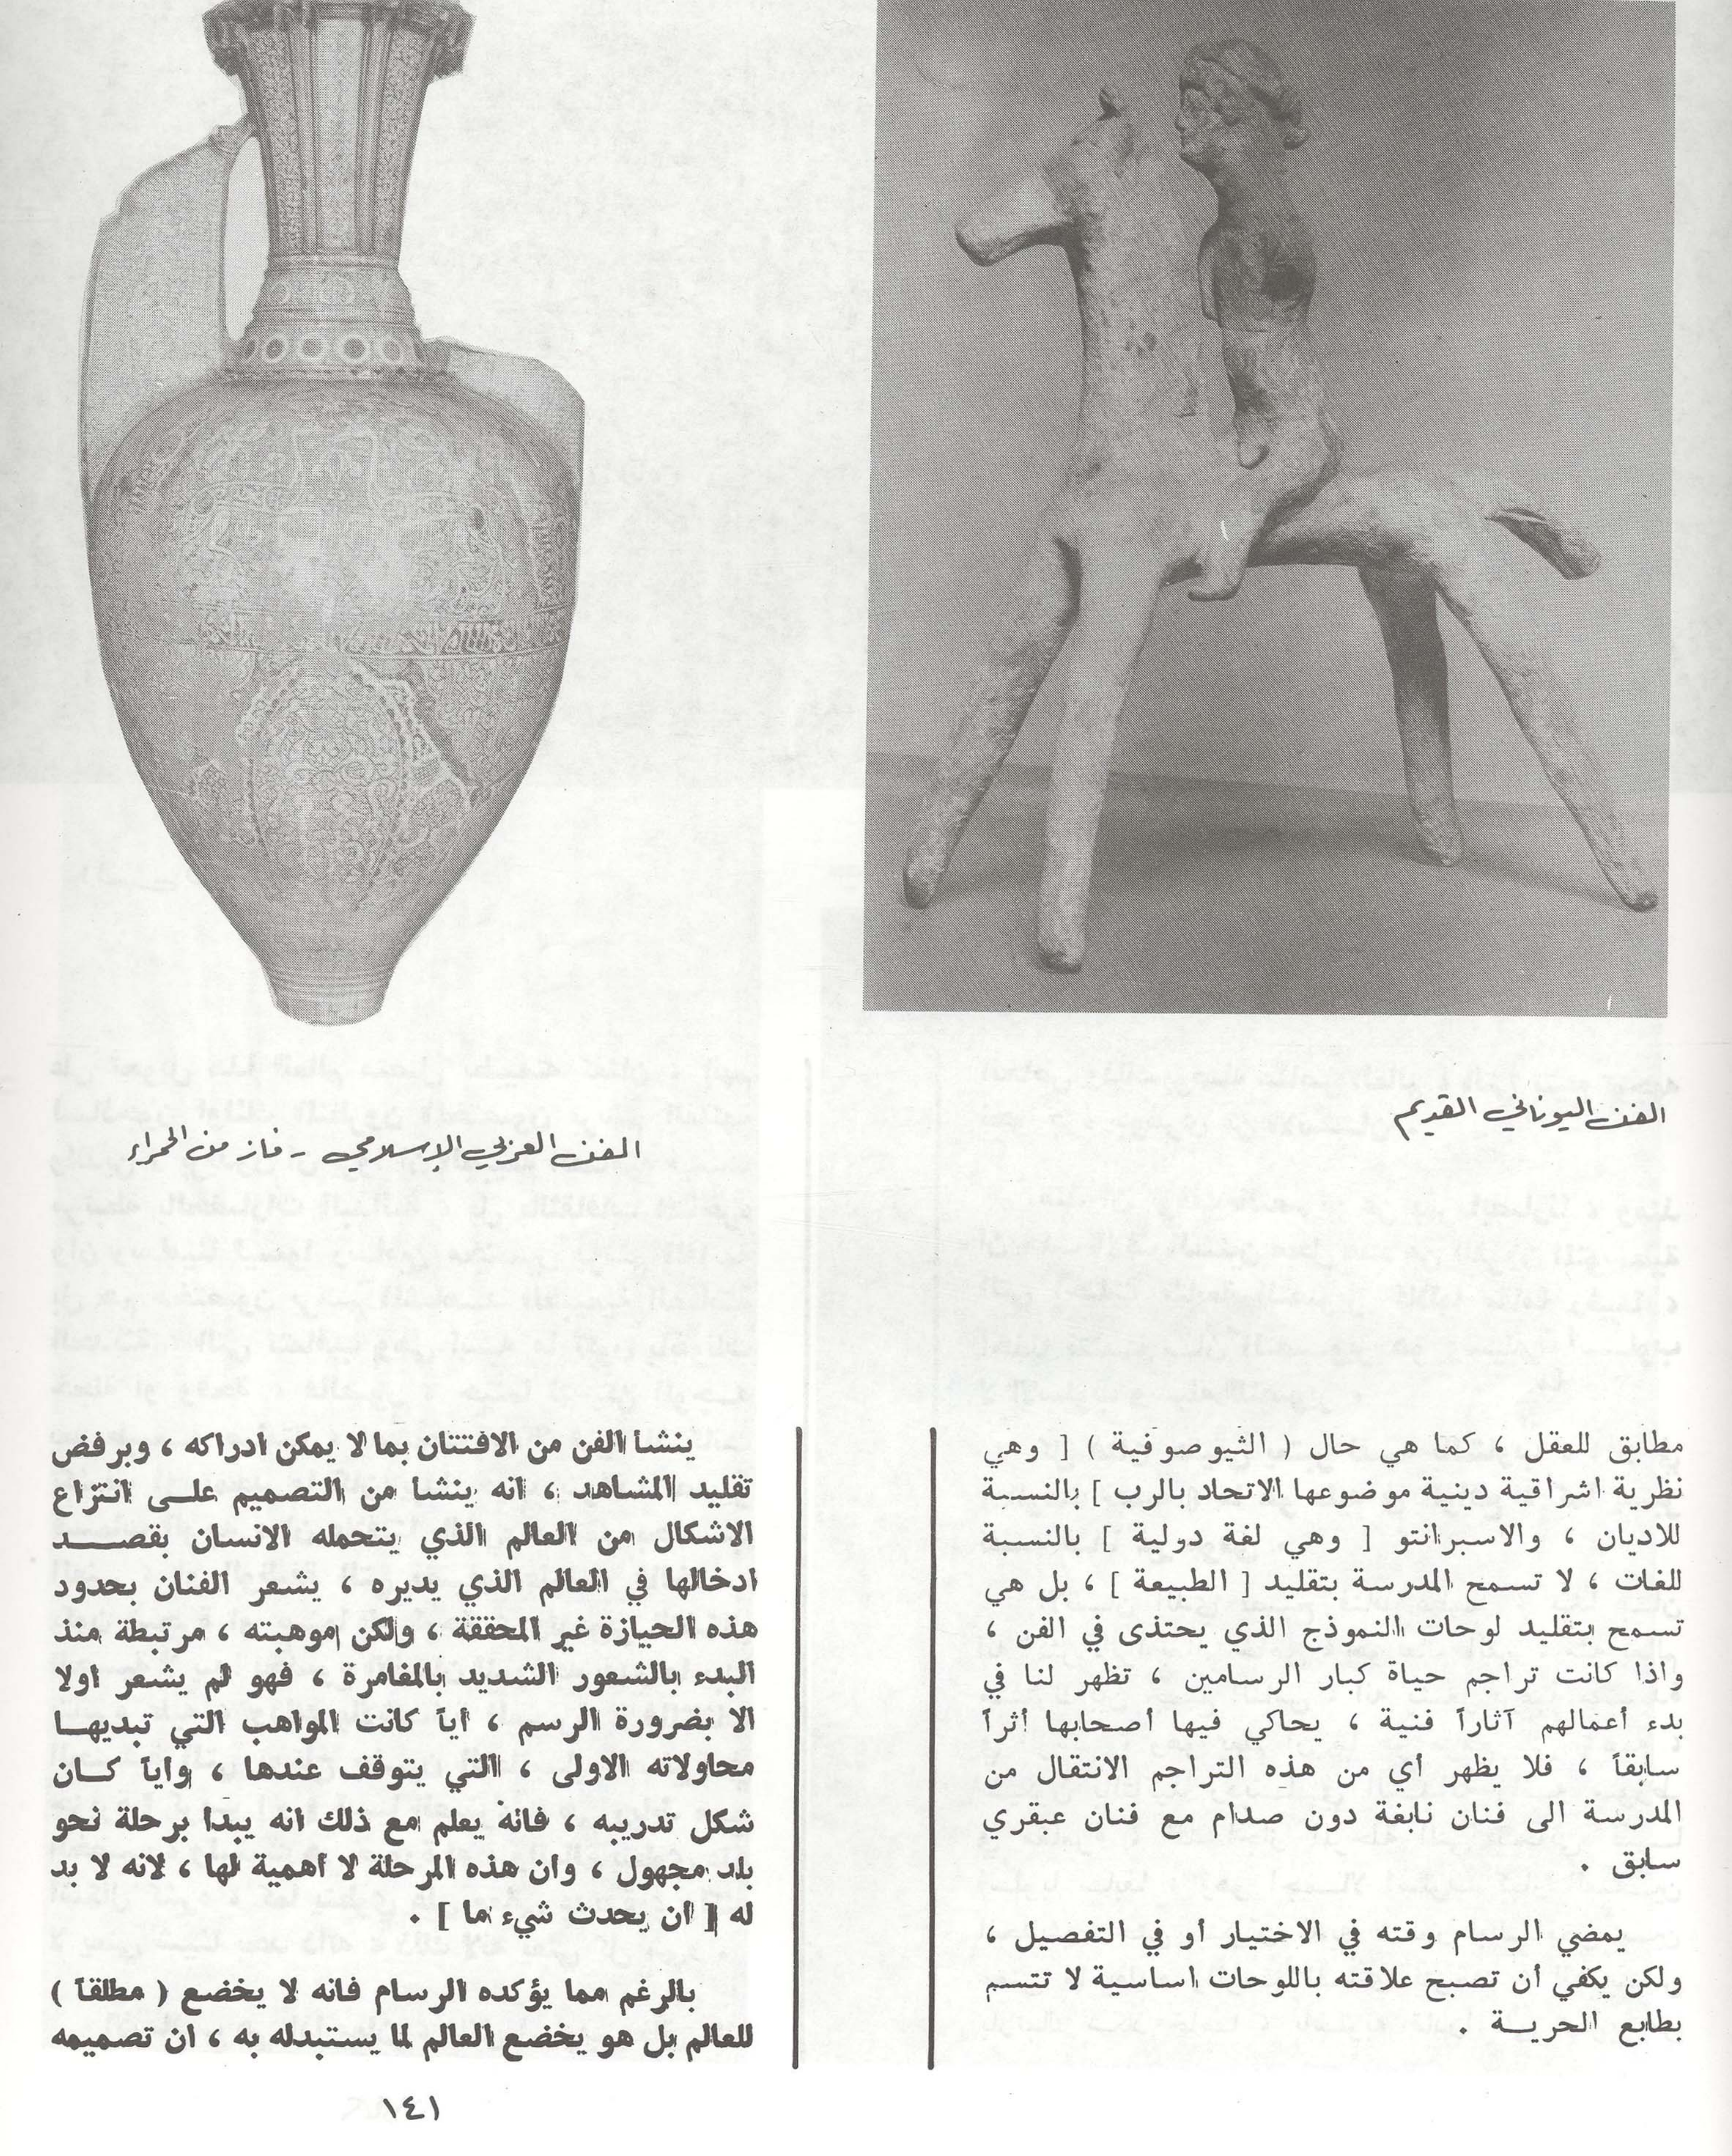 الفن اليوناني القديم
الفن العربي الإسلامي - فاز من الحمراء
مطابق للعقل ، كما هي حال ( الثيوصوفية ) [ وهي
نظرية اشراقية دينية موضوعها الاتحاد بالرب ] بالنسبة
للاديان ، والاسبرانتو [ وهي لغة دولية ] بالنسبة
للغات ، لا تسمح المدرسة بتقليد [ الطبيعة ] ، بل هي
تسمح بتقليد لوحات النموذج الذي يحتذى في الفن ،
واذا كانت تراجم حياة كبار الرسامين ، تظهر لنا في
بدء أعمالهم آثاراً فنية ، يحاكي فيها أصحابها أثراً
سابقاً ، فلا يظهر أي من هذه التراجم الانتقال من
المدرسة الى فنان نابغة دون صدام مع فنان عبقري
سابق .
يمضي الرسام وقته في الاختيار أو في التفصيل ،
ولكن يكفي أن تصبح علاقته باللوحات اساسية لا تتسم
بطابع الحريــة .
ينشأ الفن من الافتتان بما لا يمكن ادراكه ، وبرفض
تقليد المشاهد ، انه ينشا من التصميم علــى انتزاع
الاشكال من العالم الذي يتحمله الانسان بقصــد
ادخالها في العالم الذي يديره ، يشعر الفنان بحدود
هذه الحيازة غير المحققة ، ولكن موهبته ، مرتبطة منذ
البدء بالشعور الشديد بالمغامرة ، فهو لم يشعر اولا
الا بضرورة الرسم ، أياً كانت المواهب التي تبديهــا
محاولاته الاولى ، التي يتوقف عندها ، واياً كــان
شكل تدريبه ، فانه يعلم مع ذلك انه يبدا برحلة نحو
بلد مجهول ، وان هذه المرحلة لا أهمية لها ، لانه لا بد
له [ ان يحدث شيء ما ] .
بالرغم مما يؤكده الرسام فانه لا يخضع ( مطلقاً )
للعالم بل هو يخضع العالم لما يستبدله به ، ان تصميمه
١٤١